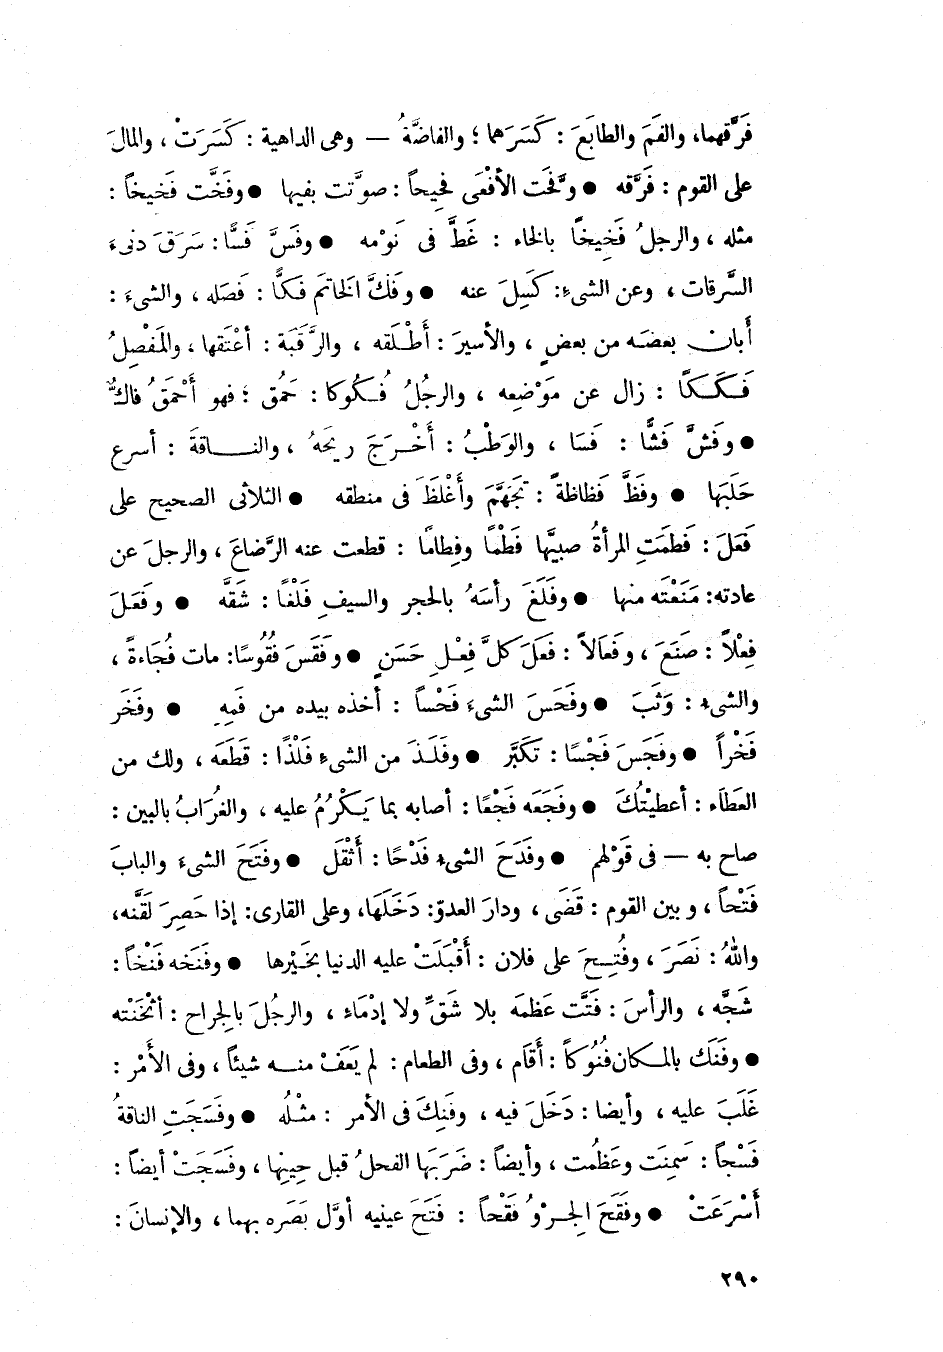 فَرَّقهما، والفَمَ والطابَعَ : كَسَرَهما ؛ والفاضَّةُ — وهى الداهية : كَسَرَتْ ، والمالَ
على القوم : فَرَّقه ● وفَحَّت الأفْعَى فَحِيحاً : صوَّتت بفيها ● وفَخَّت فَخيخاً :
مثله ، والرجلُ فَخِيخًا بالخاء : غَطَّ فى نَوْمه ● وفَسَّ فَسًّا : سَرَقَ دَنىءَ
السَّرقات ، وعن الشىءِ : كَسِلَ عنه ● وفَكَّ الخاتَم فَكًّا : فَصَله ، والشىءَ :
أَبان بعضَه من بعضٍ ، والأسيرَ : أَطْلَقه ، والرَّقَبَة : أعْتَقها ، والمَفْصِلُ
فَكَكًا : زال عن مَوْضِعه ، والرجُلُ فُكُوكا : حَمُق ؛ فهو أَحْمَقُ فاكٌّ
● وفَشَّ فَشًّا : فَسَا ، والوَطْبُ : أَخْرَجَ ريحَهُ ، والناقةَ : أسرع
حَلَبَها ● وفَظَّ فَظاظةً : تَجَهَّمَ وأَغْلَظَ فى منطقه ● الثلاثى الصحيح على
فَعَلَ : فَطَمَتِ المرأةُ صبيَّها فَطْمًا وفِطامًا : قطعت عنه الرَّضاعَ ، والرجلَ عن
عادته: مَنَعْتَه منها ● وفَلَغَ رأسَهُ بالحجر والسيفِ فَلْغًا : شَقَّه ● وفَعَلَ
فِعْلاً : صَنَعَ ، وفَعالاً : فَعَلَ كلَّ فِعْلٍ حَسَنٍ ● وفَقَسَ فُقُوسًا: مات فُجَاءةً ،
والشىء : وَثَبَ ● وفَحَسَ الشىءَ فَحْساً : أخذه بيده من فَمِهِ ● وفَخَر
فَخْراً ● وفَجَسَ فَجْسًا : تَكَبَّر ● وفَلَذَ من الشىءِ فَلْذًا : قَطَعَه ، ولك من
العَطَاء : أعطيْتُكَ ● وفَجَعَه فَجْعًا : أصابه بما يَكْرُمُ عليه ، والغُرَابُ بالبين :
صاح به — فى قَوْلهم ● وفَدَحَ الشىء فَدْحًا : أَثْقَل ● وفَتَحَ الشىءَ والبابَ
فَتْحاً ، وبين القوم : قَضَى ، ودارَ العدوّ: دَخَلَها، وعلى القارئ: إذا حَصِرَ لَقَّنه،
واللهُ : نَصَرَ ، وفُتِحَ على فلان : أَقْبَلَتْ عليه الدنيا بخَيْرها ● وفَنَخه فَنْخاً :
شَجَّه ، والرأسَ : فَتَّت عَظمَه بلا شَقٍّ ولا إدْمَاء ، والرجُلَ بالجِراح : أثْخَنْته
● وفَنَك بالمكان فُنُوكاً : أَقَام ، وفى الطعام : لم يَعَفْ منه شيئاً ، وفى الأمْر :
غَلَبَ عليه ، وأيضا : دَخَلَ فيه ، وفَنِكَ فى الأمر : مثْلُه ● وفَسَجَتِ الناقةُ
فَسْجاً : سَمِنَت وعَظُمت ، وأيضاً : ضَرَبَها الفحلُ قبل حِينِها ، وفَسَجَتْ أيضاً :
أَسْرَعَتْ ● وفَقَحَ الجِرْوُ فَقْحاً : فَتَحَ عينيه أوَّل بَصَره بهما ، والإنسانَ :
٢٩٠